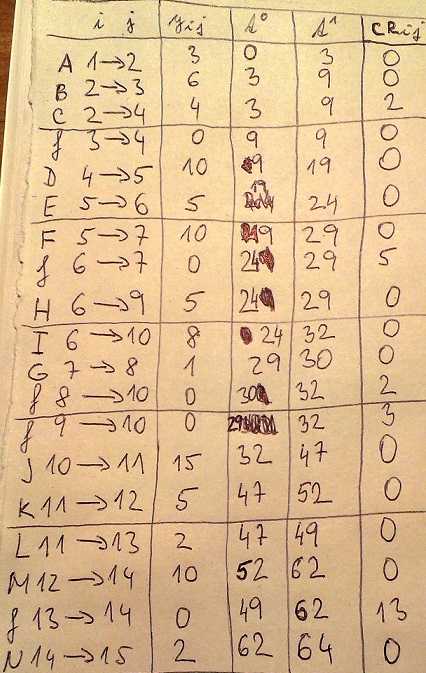 i j yij t⁰ t¹ CRij
A 1→2 3 0 3 0
B 2→3 6 3 9 0
C 2→4 4 3 9 2
f 3→4 0 9 9 0
D 4→5 10 9 19 0
E 5→6 5 19 24 0
F 5→7 10 19 29 0
f 6→7 0 24 29 5
H 6→9 5 24 29 0
I 6→10 8 24 32 0
G 7→8 1 29 30 0
f 8→10 0 30 32 2
f 9→10 0 29 32 3
J 10→11 15 32 47 0
K 11→12 5 47 52 0
L 11→13 2 47 49 0
M 12→14 10 52 62 0
f 13→14 0 49 62 13
N 14→15 2 62 64 0